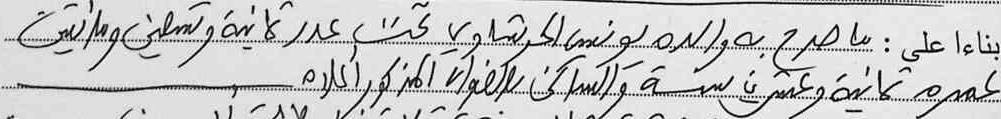 بناءا على : ما صرح به والده يونس الحرشاوي تحت عدد ثمانية وتسعين ومائتين
عمره ثمانية وعشرين سنة والساكن بالعنوان المذكور أعلاه